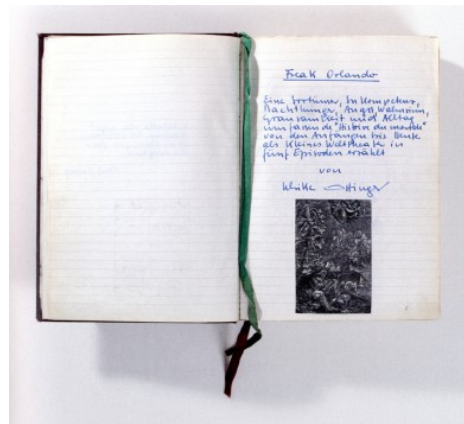 Freak Orlando
Eine Irrtümer, Inkompetenz,
Machthunger, Angst, Wahnsinn,
Grausamkeit und Alltag
umfassende "Histoire du monde"
von den Anfängen bis heute
als kleines Welttheater in
fünf Episoden erzählt
von
Ulrike Ottinger